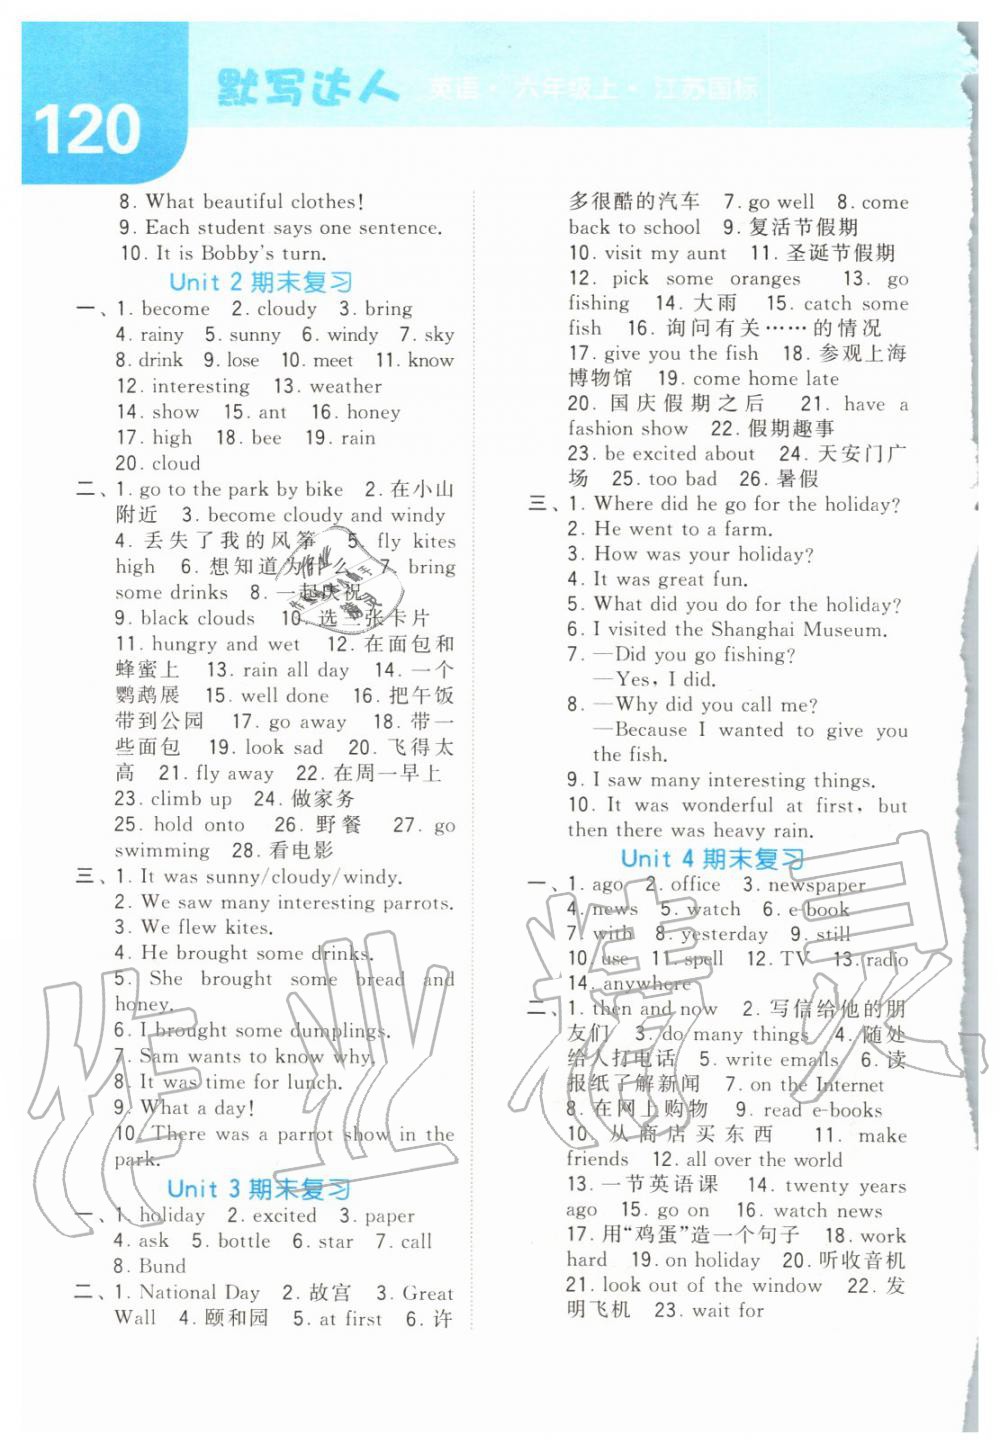 120
默写达人 英语·六年级上·江苏国标
8. What beautiful clothes!
9. Each student says one sentence.
10. It is Bobby's turn.
Unit 2 期末复习
一、1. become 2. cloudy 3. bring
4. rainy 5. sunny 6. windy 7. sky
8. drink 9. lose 10. meet 11. know
12. interesting 13. weather
14. show 15. ant 16. honey
17. high 18. bee 19. rain
20. cloud
二、1. go to the park by bike 2. 在小山
附近 3. become cloudy and windy
4. 丢失了我的风筝 5. fly kites
high 6. 想知道为什么 7. bring
some drinks 8. 一起庆祝
9. black clouds 10. 选三张卡片
11. hungry and wet 12. 在面包和
蜂蜜上 13. rain all day 14. 一个
鹦鹉展 15. well done 16. 把午饭
带到公园 17. go away 18. 带一
些面包 19. look sad 20. 飞得太
高 21. fly away 22. 在周一早上
23. climb up 24. 做家务
25. hold onto 26. 野餐 27. go
swimming 28. 看电影
三、1. It was sunny/cloudy/windy.
2. We saw many interesting parrots.
3. We flew kites.
4. He brought some drinks.
5. She brought some bread and
honey.
6. I brought some dumplings.
7. Sam wants to know why.
8. It was time for lunch.
9. What a day!
10. There was a parrot show in the
park.
Unit 3 期末复习
一、1. holiday 2. excited 3. paper
4. ask 5. bottle 6. star 7. call
8. Bund
二、1. National Day 2. 故宫 3. Great
Wall 4. 颐和园 5. at first 6. 许
多很酷的汽车 7. go well 8. come
back to school 9. 复活节假期
10. visit my aunt 11. 圣诞节假期
12. pick some oranges 13. go
fishing 14. 大雨 15. catch some
fish 16. 询问有关……的情况
17. give you the fish 18. 参观上海
博物馆 19. come home late
20. 国庆假期之后 21. have a
fashion show 22. 假期趣事
23. be excited about 24. 天安门广
场 25. too bad 26. 暑假
三、1. Where did he go for the holiday?
2. He went to a farm.
3. How was your holiday?
4. It was great fun.
5. What did you do for the holiday?
6. I visited the Shanghai Museum.
7. —Did you go fishing?
—Yes, I did.
8. —Why did you call me?
—Because I wanted to give you
the fish.
9. I saw many interesting things.
10. It was wonderful at first, but
then there was heavy rain.
Unit 4 期末复习
一、1. ago 2. office 3. newspaper
4. news 5. watch 6. e-book
7. with 8. yesterday 9. still
10. use 11. spell 12. TV 13. radio
14. anywhere
二、1. then and now 2. 写信给他的朋
友们 3. do many things 4. 随处
给人打电话 5. write emails 6. 读
报纸了解新闻 7. on the Internet
8. 在网上购物 9. read e-books
10. 从商店买东西 11. make
friends 12. all over the world
13. 一节英语课 14. twenty years
ago 15. go on 16. watch news
17. 用“鸡蛋”造一个句子 18. work
hard 19. on holiday 20. 听收音机
21. look out of the window 22. 发
明飞机 23. wait for
作业精灵